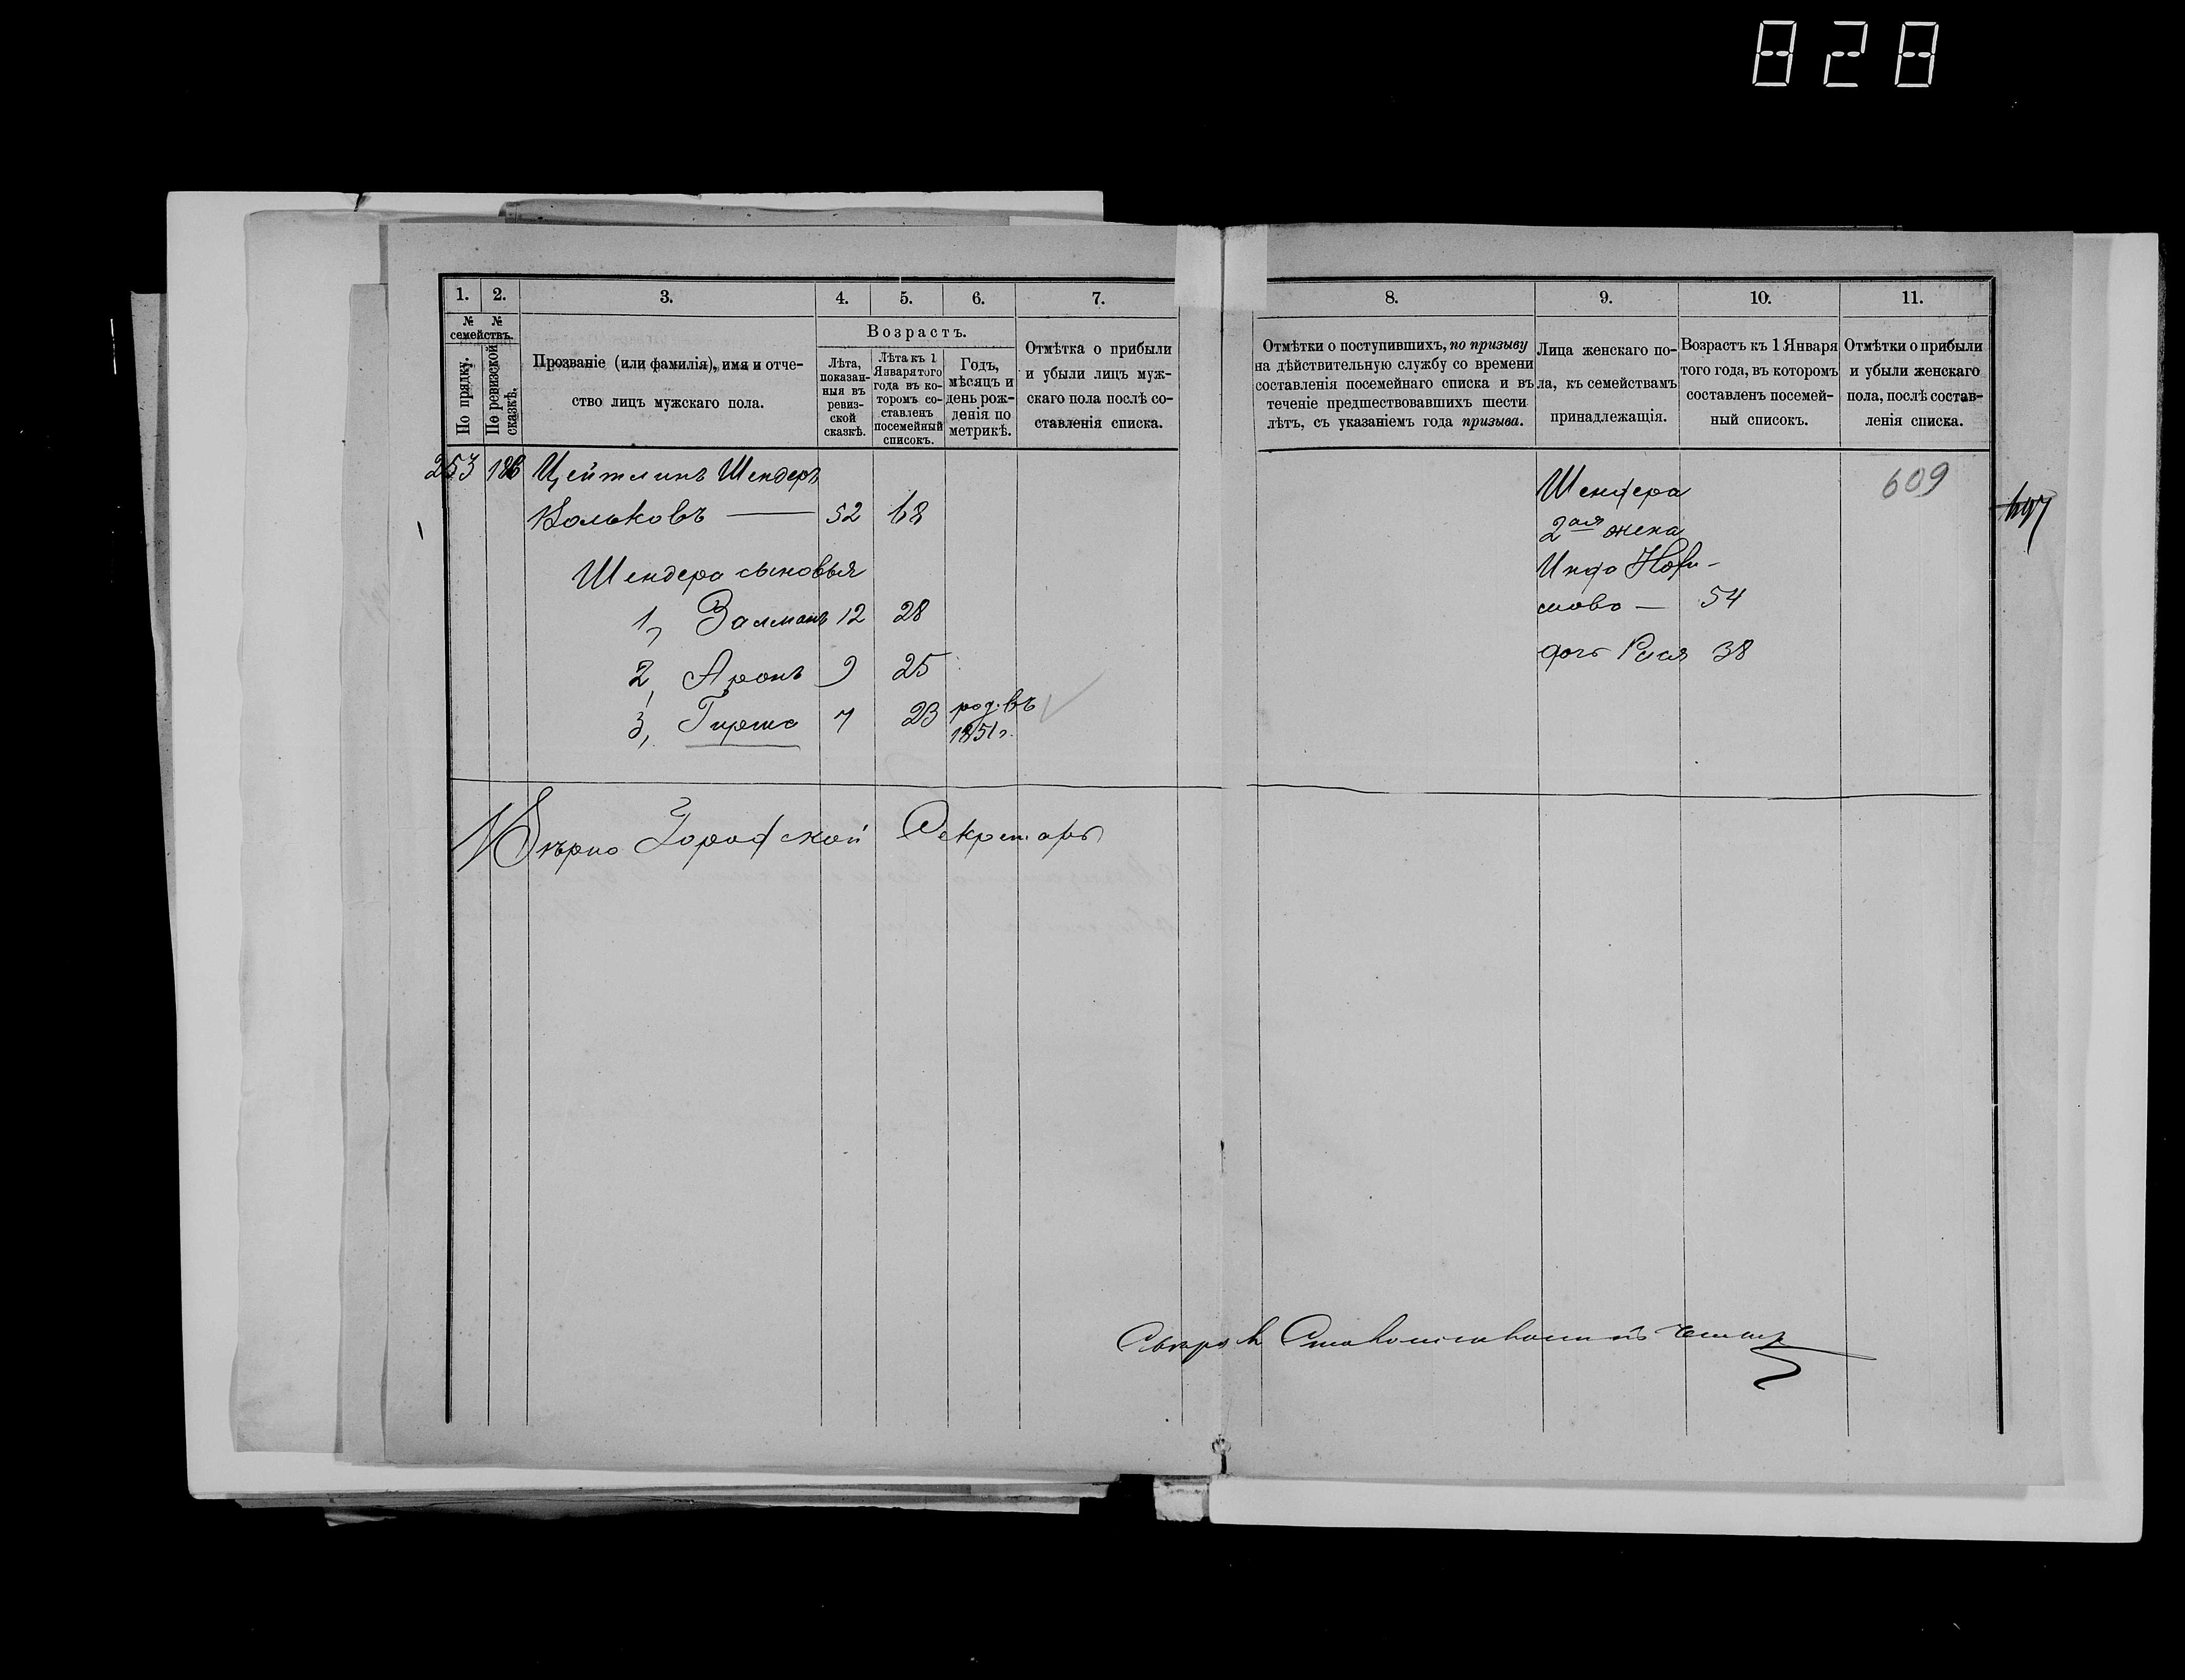 828
1. 2. 3. 4. 5. 6. 7.
№ № семействъ.
По прядку.
По ревизской сказкѣ.
Прозваніе (или фамилія), имя и отче-
ство лицъ мужскаго пола.
Возрастъ.
Лѣта,
показан-
ныя въ
ревиз-
ской
сказкѣ.
Лѣта къ 1
Января того
года въ ко-
торомъ со-
ставленъ
посемейный
списокъ.
Годъ,
мѣсяцъ и
день рож-
денія по
метрикѣ.
Отмѣтка о прибыли
и убыли лицъ муж-
скаго пола послѣ со-
ставленія списка.
253 Цейтлинъ Шендеръ
52 68
Шендера сыновья
1, Залманъ 12 28
2, Аронъ 9 25
3, Гирша 7 23 род. въ
1851 г.
Вѣрно Городской Секретарь
8. 9. 10. 11.
Отмѣтки о поступившихъ, по призыву
на дѣйствительную службу со времени
составленія посемейнаго списка и въ
теченіе предшествовавшихъ шести
лѣтъ, съ указаніемъ года призыва.
Лица женскаго по-
ла, къ семействамъ
принадлежащія.
Возрастъ къ 1 Января
того года, въ которомъ
составленъ посемей-
ный списокъ.
Отмѣтки о прибыли
и убыли женскаго
пола, послѣ состав-
ленія списка.
609
Шендера
2ая жена
54
дочь Рася 38